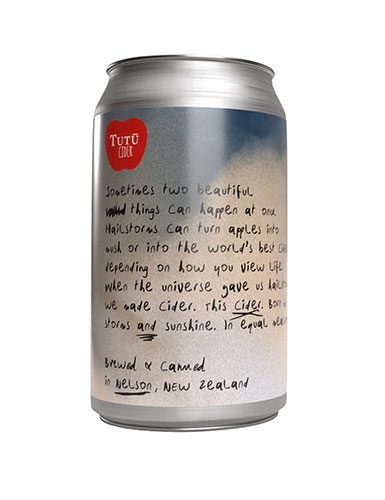 TUTŪ
CIDER
Sometimes two beautiful
things can happen at once.
Hailstorms can turn apples into
mush or into the world's best
depending on how you view life
When the universe gave us
we made cider. This Cider. Born
storms and sunshine. In equal
Brewed & Canned
in NELSON, NEW Zealand